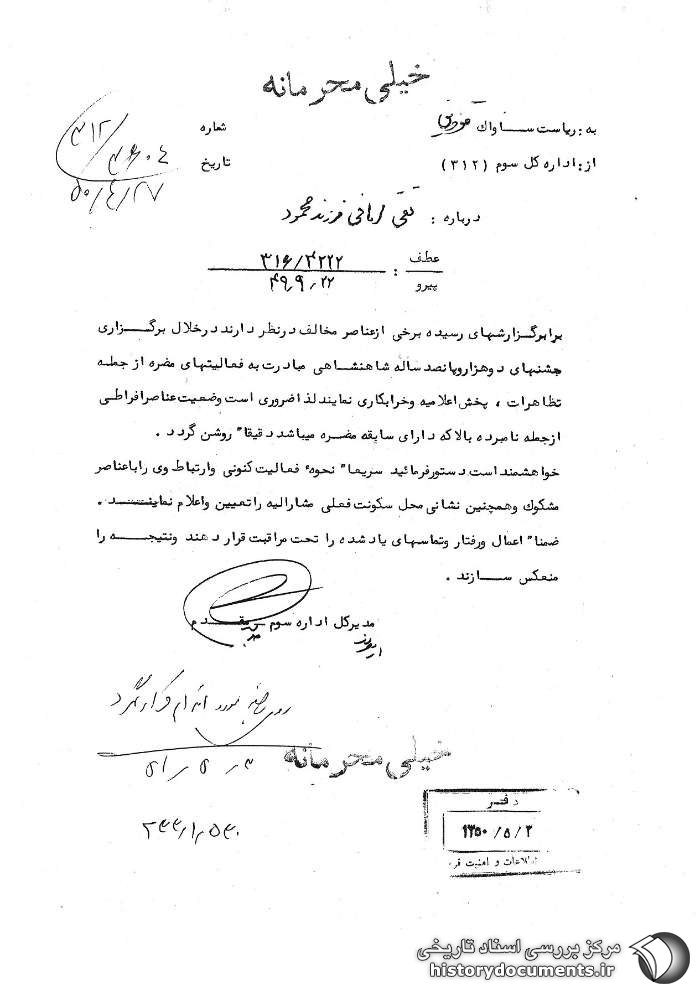 خیلی محرمانه
به: ریاست ساواک قزوین
شماره ۳۱۲/
از: اداره کل سوم (۳۱۲)
تاریخ ۵۰/۴/۲۷
درباره : تقی فرزند محمود
عطف
پیرو : ۳۱۶/۳۲۲۲
۴۹٫۹٫۲۲
برابر گزارشهای رسیده برخی از عناصر مخالف در نظر دارند در خلال برگزاری
جشنهای دوهزار و پانصد ساله شاهنشاهی مبادرت به فعالیتهای مضره از جمله
تظاهرات ، پخش اعلامیه و خرابکاری نمایند لذا ضروری است وضعیت عناصر افراطی
از جمله نامبرده بالا که دارای سابقه مضره میباشد دقیقا" روشن گردد .
خواهشمند است دستور فرمائید سریعا" نحوه فعالیت کنونی و ارتباط وی را با عناصر
مشکوک و همچنین نشانی محل سکونت فعلی مشارالیه را تعیین و اعلام نمایند .
ضمنا" اعمال و رفتار و تماسهای یاد شده را تحت مراقبت قرار دهند و نتیجه را
منعکس سازند .
مدیر کل اداره سوم . مقدم
مورد اقدام قرار گیرد
خیلی محرمانه
دفتر
۱۳۵۰/۵/۲
اطلاعات و امنیت
مرکز بررسی اسناد تاریخی
historydocuments.ir